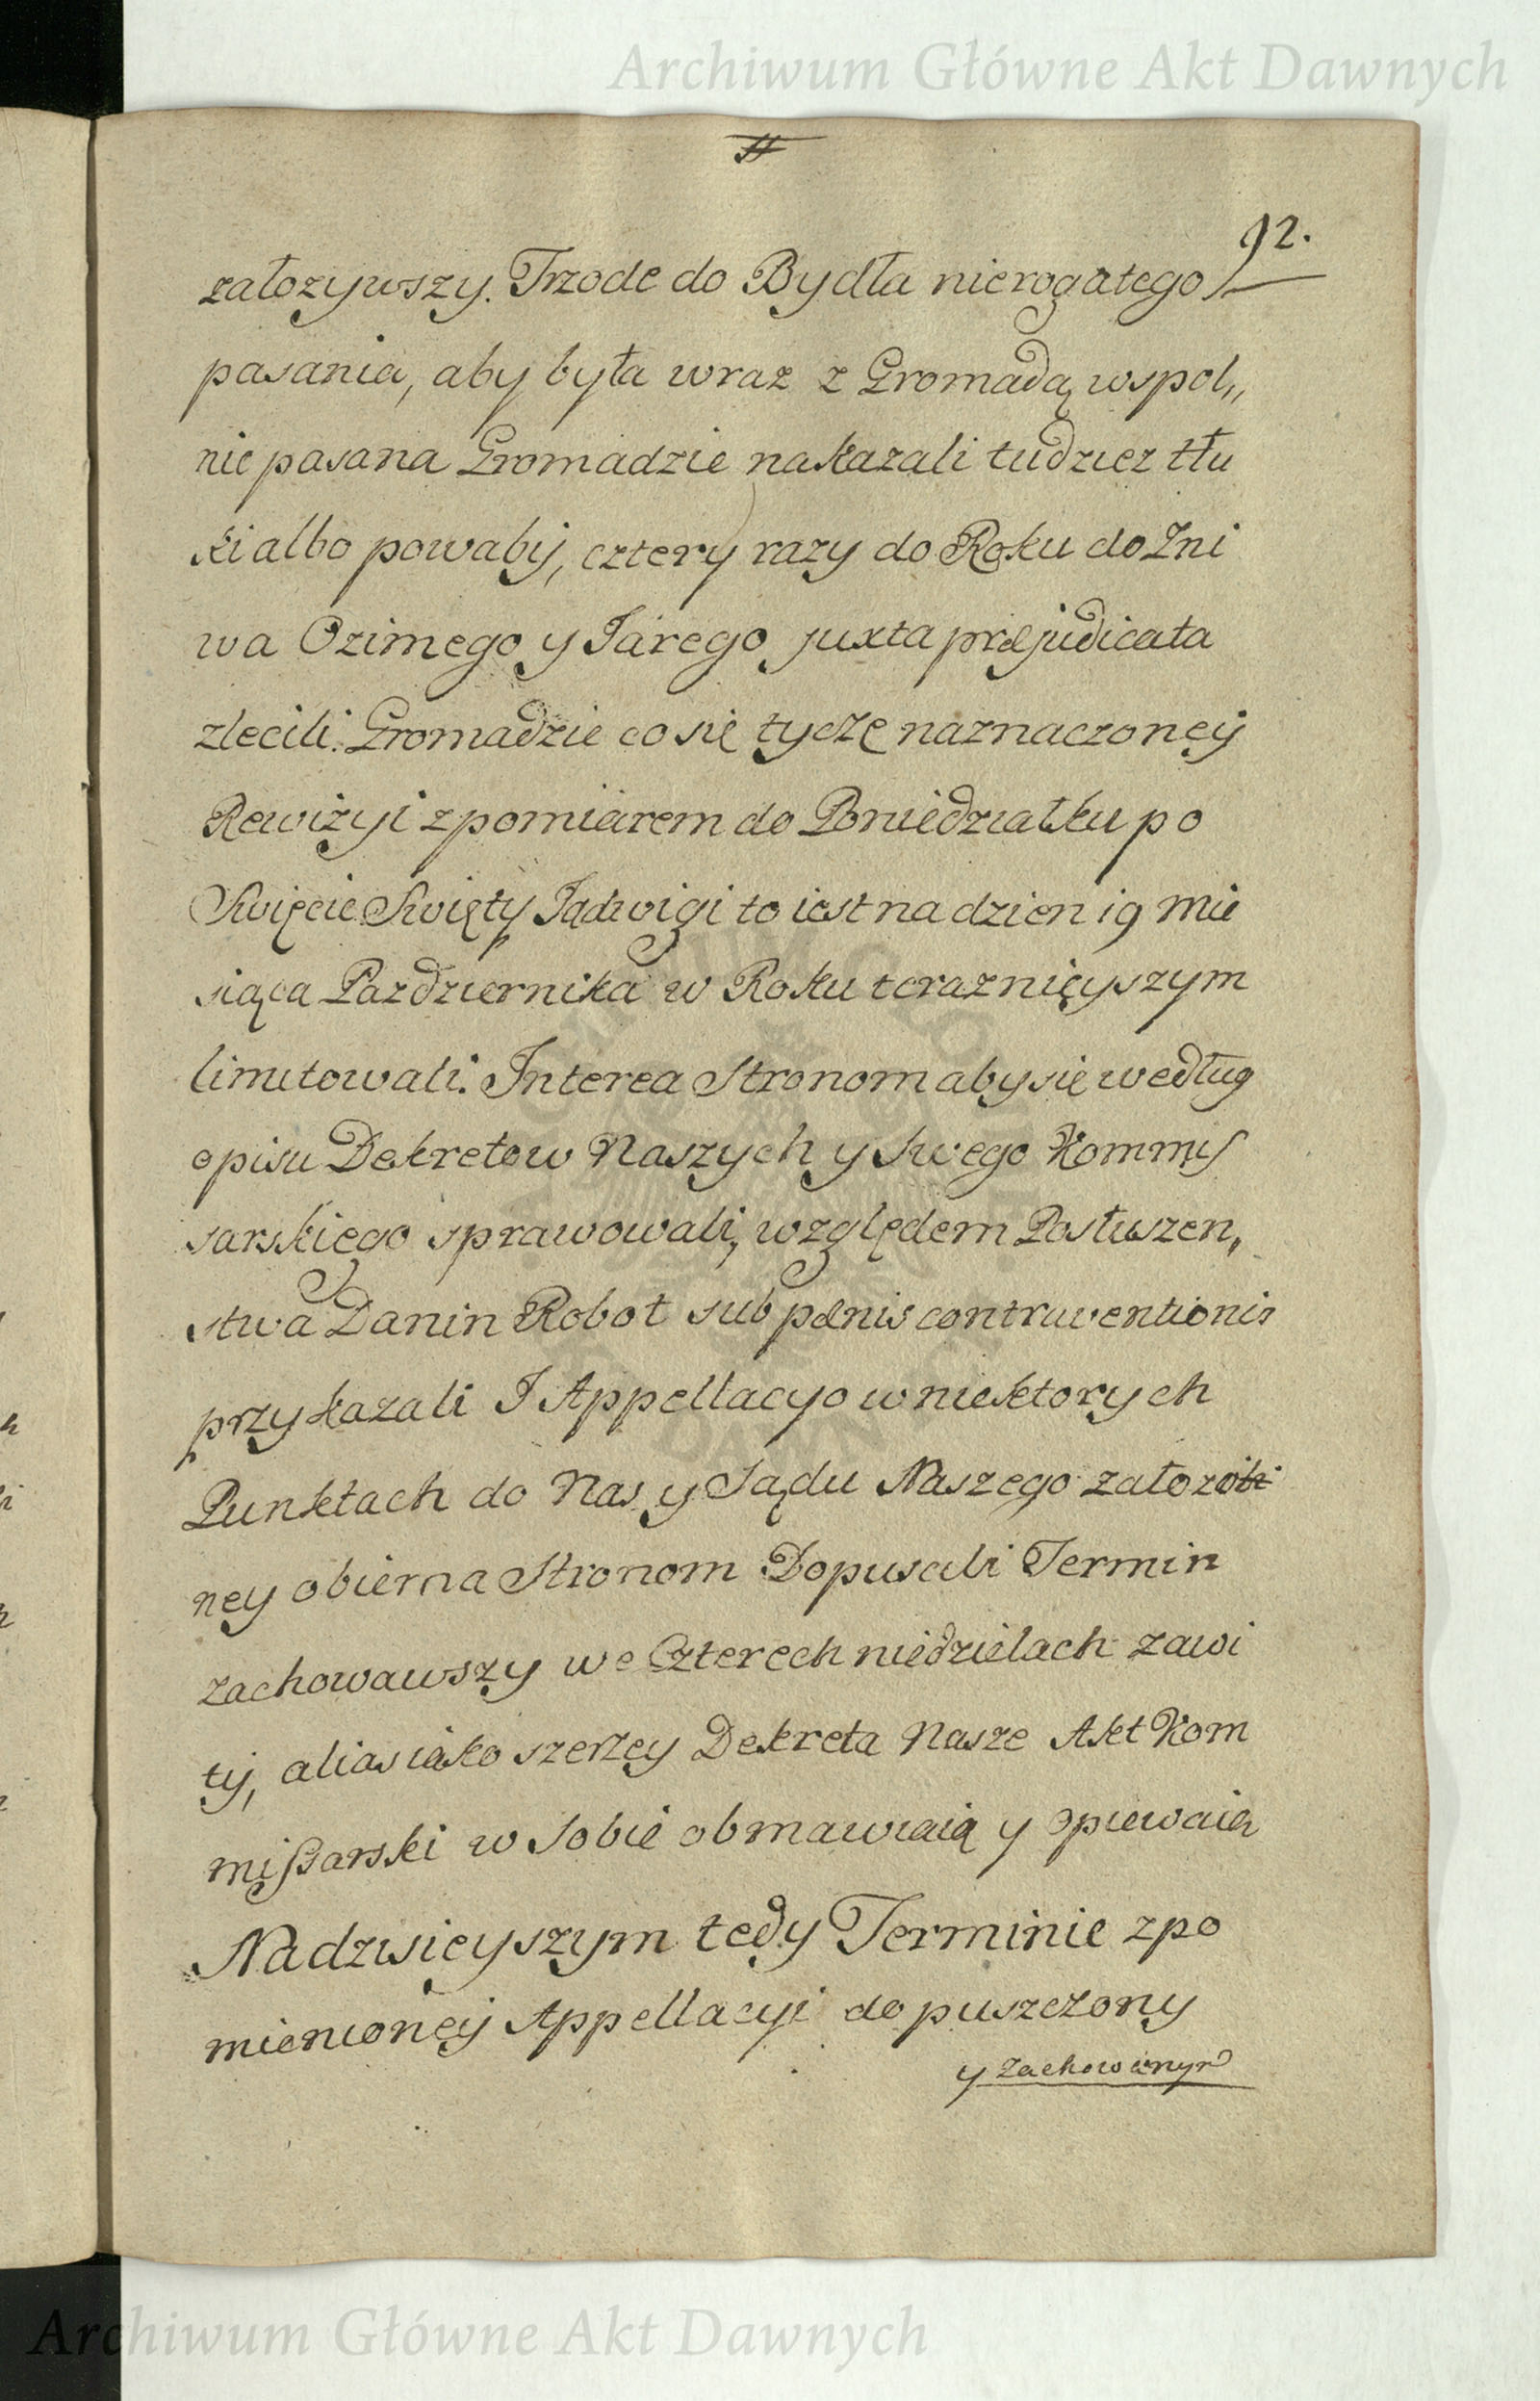 Archiwum Główne Akt Dawnych
92.
załozywszy. Trzode do Bydła nierogatego
pasania, aby była wraz z Gromadą wspol„
nie pasana Gromadzie nakazali tudziez tłu
ki albo powabÿ, cztery razy do Roku do Zni
wa Ozimego y Jarego juxta præjudicata
zlecili. Gromadzie co się tycze naznaczonęÿ
Rewizyi z pomiarem do Poniedziałku po
Swięcie Swięty Jadwigi to iest na dzien 19 Mie
siąca Pazdziernika w Roku teraznięyszym
limitowali. Interea Stronom aby się według
opisu Dekretow Naszych y Swego Kommis
sarskiego sprawowali, względem Posłuszen„
stwa Danin Robot sub pænis contraventionis
przykazali J Appellacyo w niektorych
Punktach do Nas y Sądu Naszego załozo
ney obiema Stronom Dopuscili Termin
zachowawszy we Czterech niedzielach zawi
tÿ, alias iako szerzey Dekreta Nasze Akt Kom
mißarski w Sobie obmawiaią y opiewaią
Na dzisięyszym tedy Terminie z po
mienionęÿ Appellacyi dopuszczony
y zachowanym
Archiwum Główne Akt Dawnych